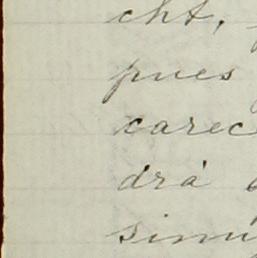 cht,
pues
carec
drá
simu